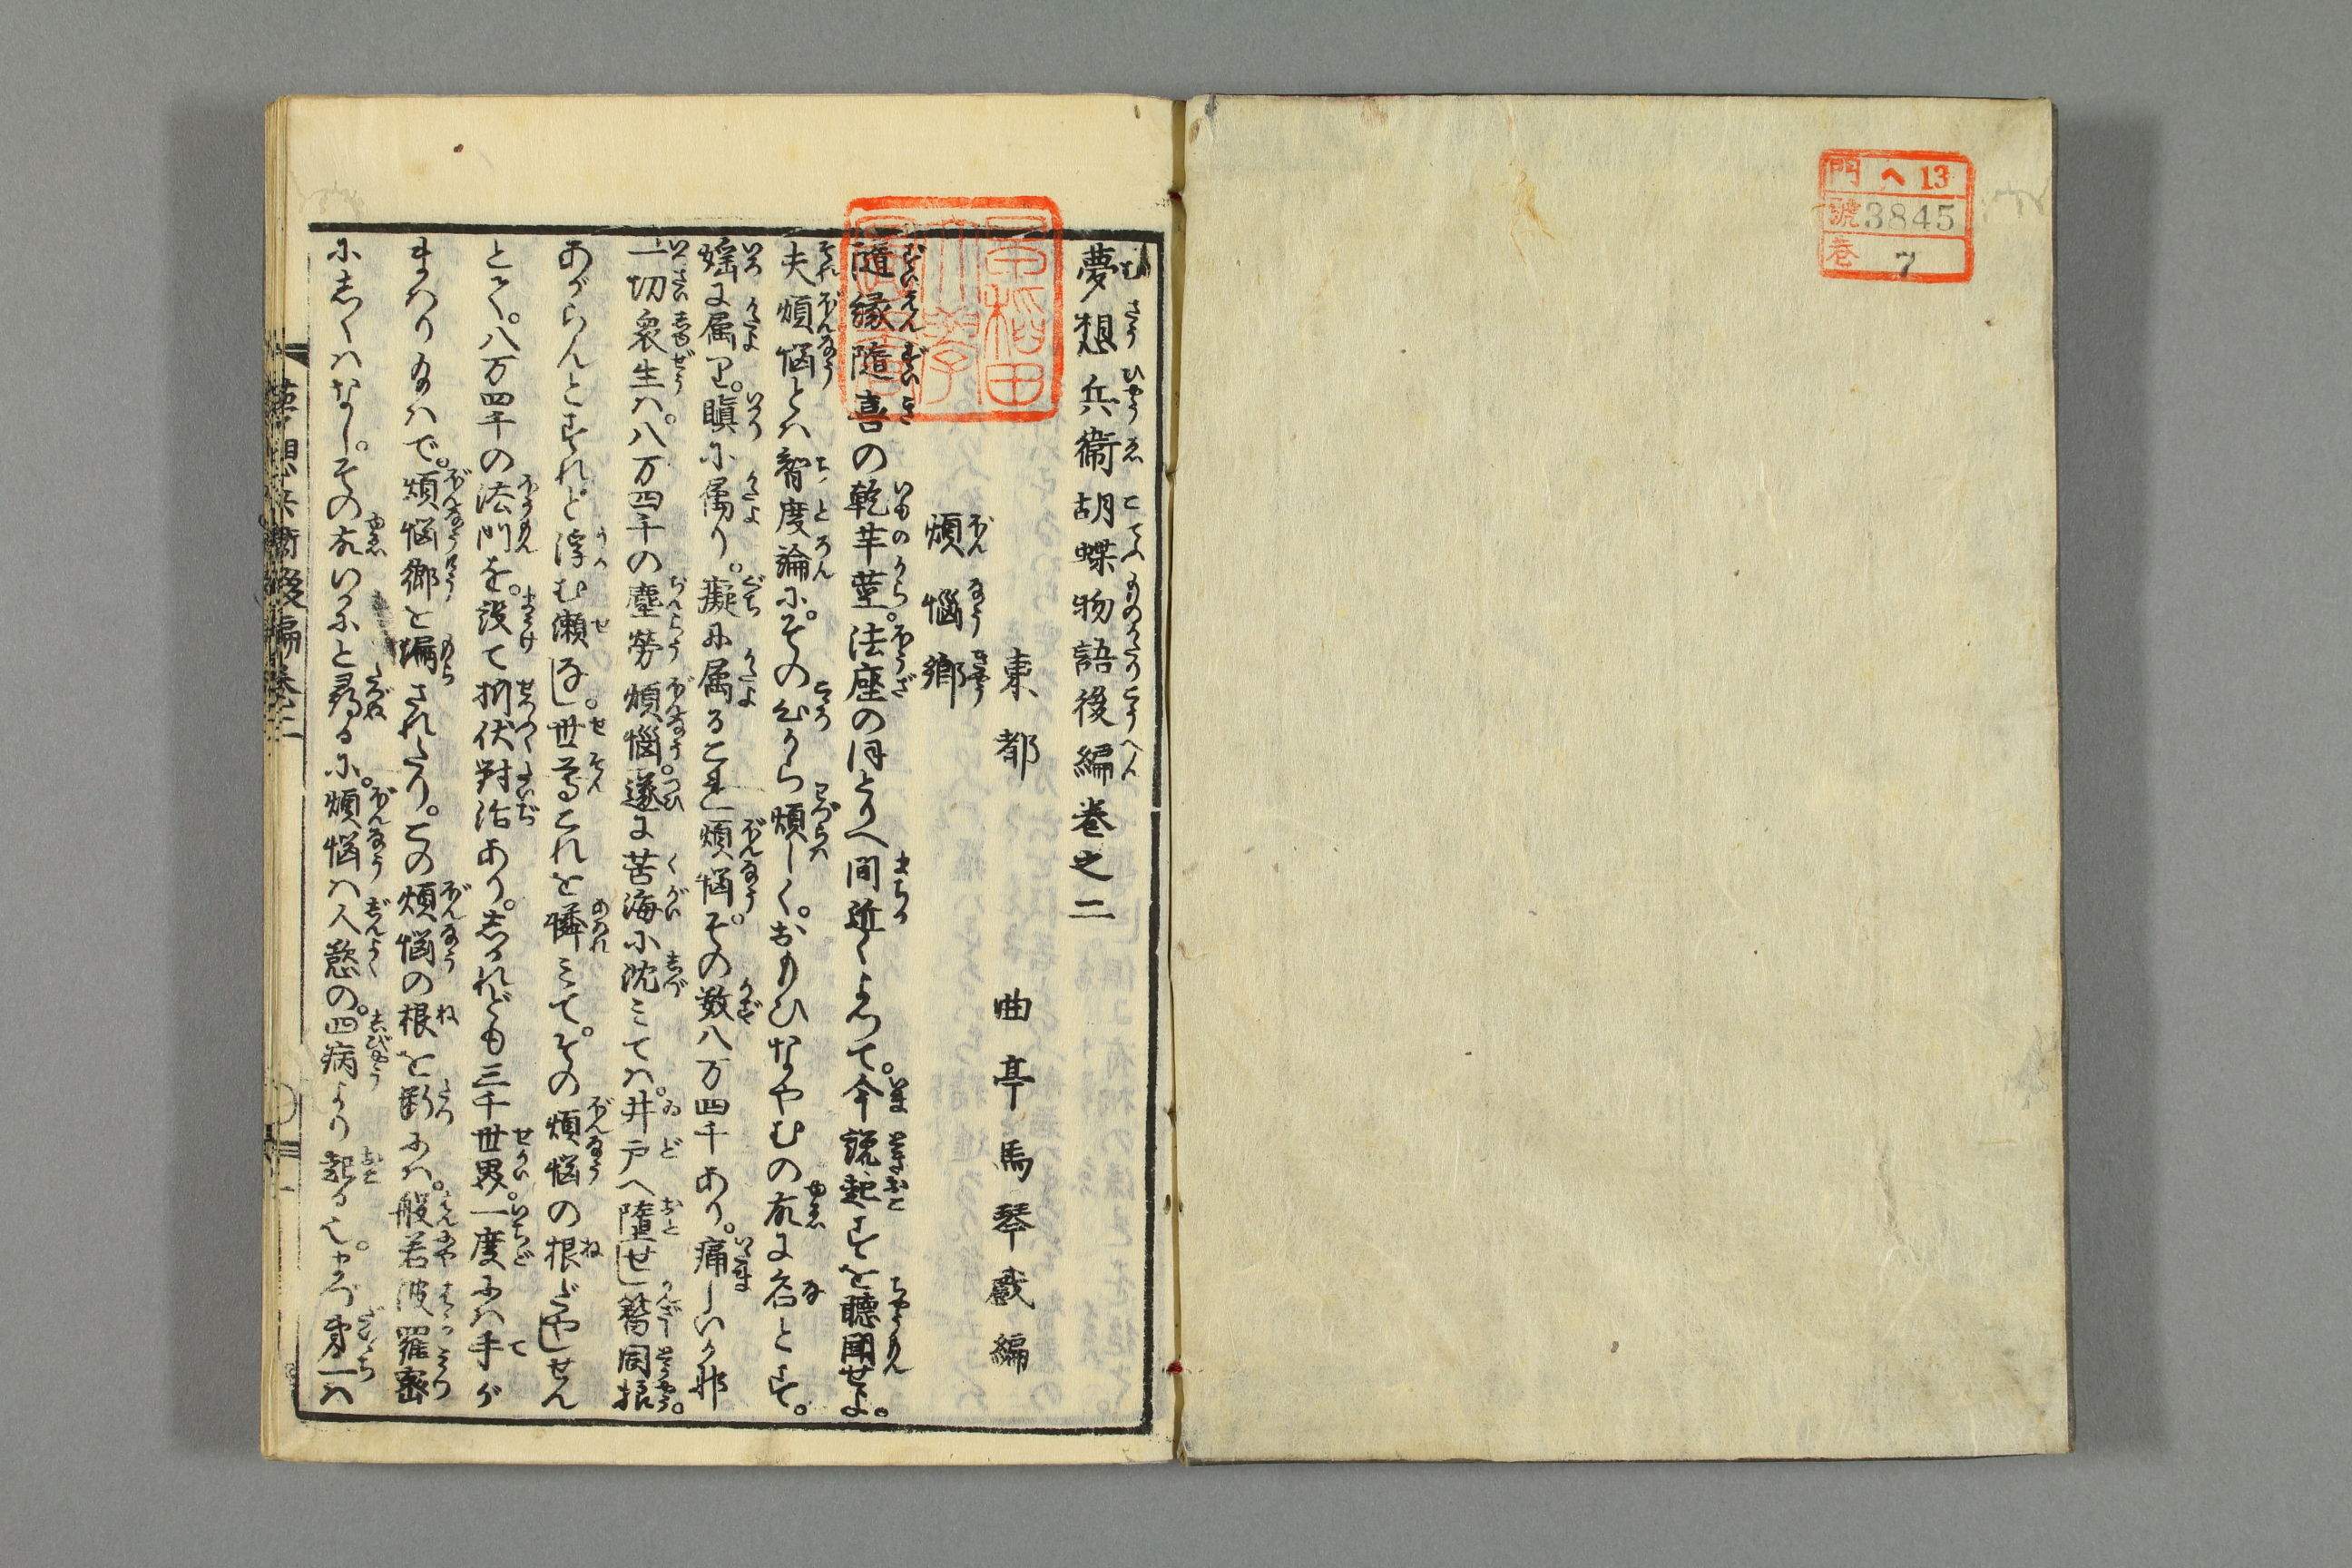 門 ヘ13
號 3845
巻 7
夢想兵衞胡蝶物語後編巻之二
東都 曲亭馬琴戲編
煩惱郷
隨縁隨喜の乾芋莖。法座のほとりへ間近くよつて。今説起すを聽聞せよ。
夫煩悩とハ智度論に。その心から煩しく。おもひなやむの故に名とす。
婬に属し。瞋に属り。癡に属るこれ煩悩。その数八万四千あり。痛しいかな
一切衆生ハ。八万四千の塵勞煩惱。遂に苦海に沈ミてハ。井戸へ墮せし簪同様。
あがらんとすれど浮む瀬なし。世尊これを憐ミて。その煩悩の根だやしせん
とて。八万四千の法門を。設て折伏對治あり。しかれども三千世界。一度にハ手が
まハりかねハで。煩悩郷を漏されたり。この煩悩の根を断にハ。般若波羅密
にしくハなし。その故いかにと尋るに。煩悩ハ人慾の。四病より起る也。まづ第一ハ
夢想兵衞後編巻二